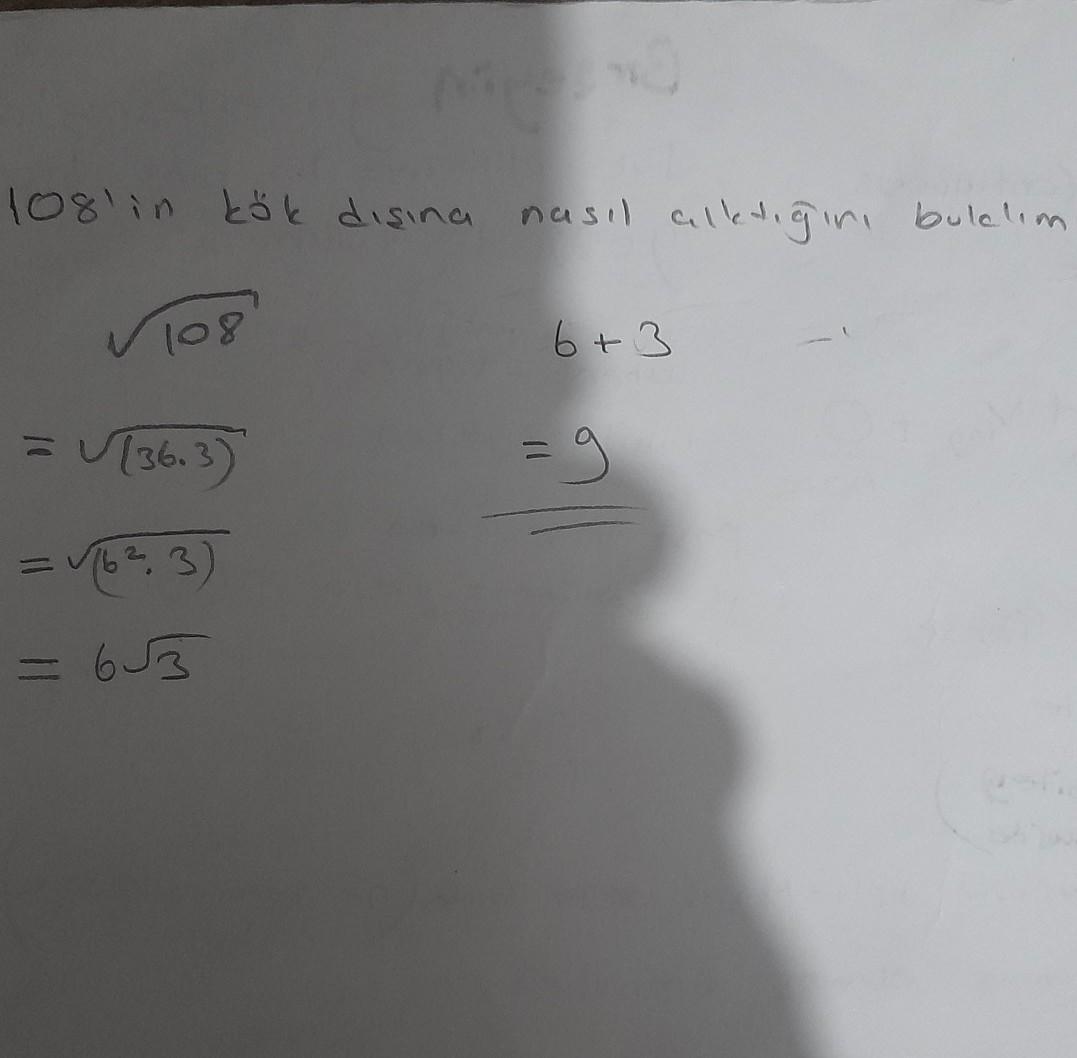 108'in kök dışına nasıl çıktığını bulalım
√108
= √(36.3)
= √(6². 3)
= 6√3
6 + 3
= 9